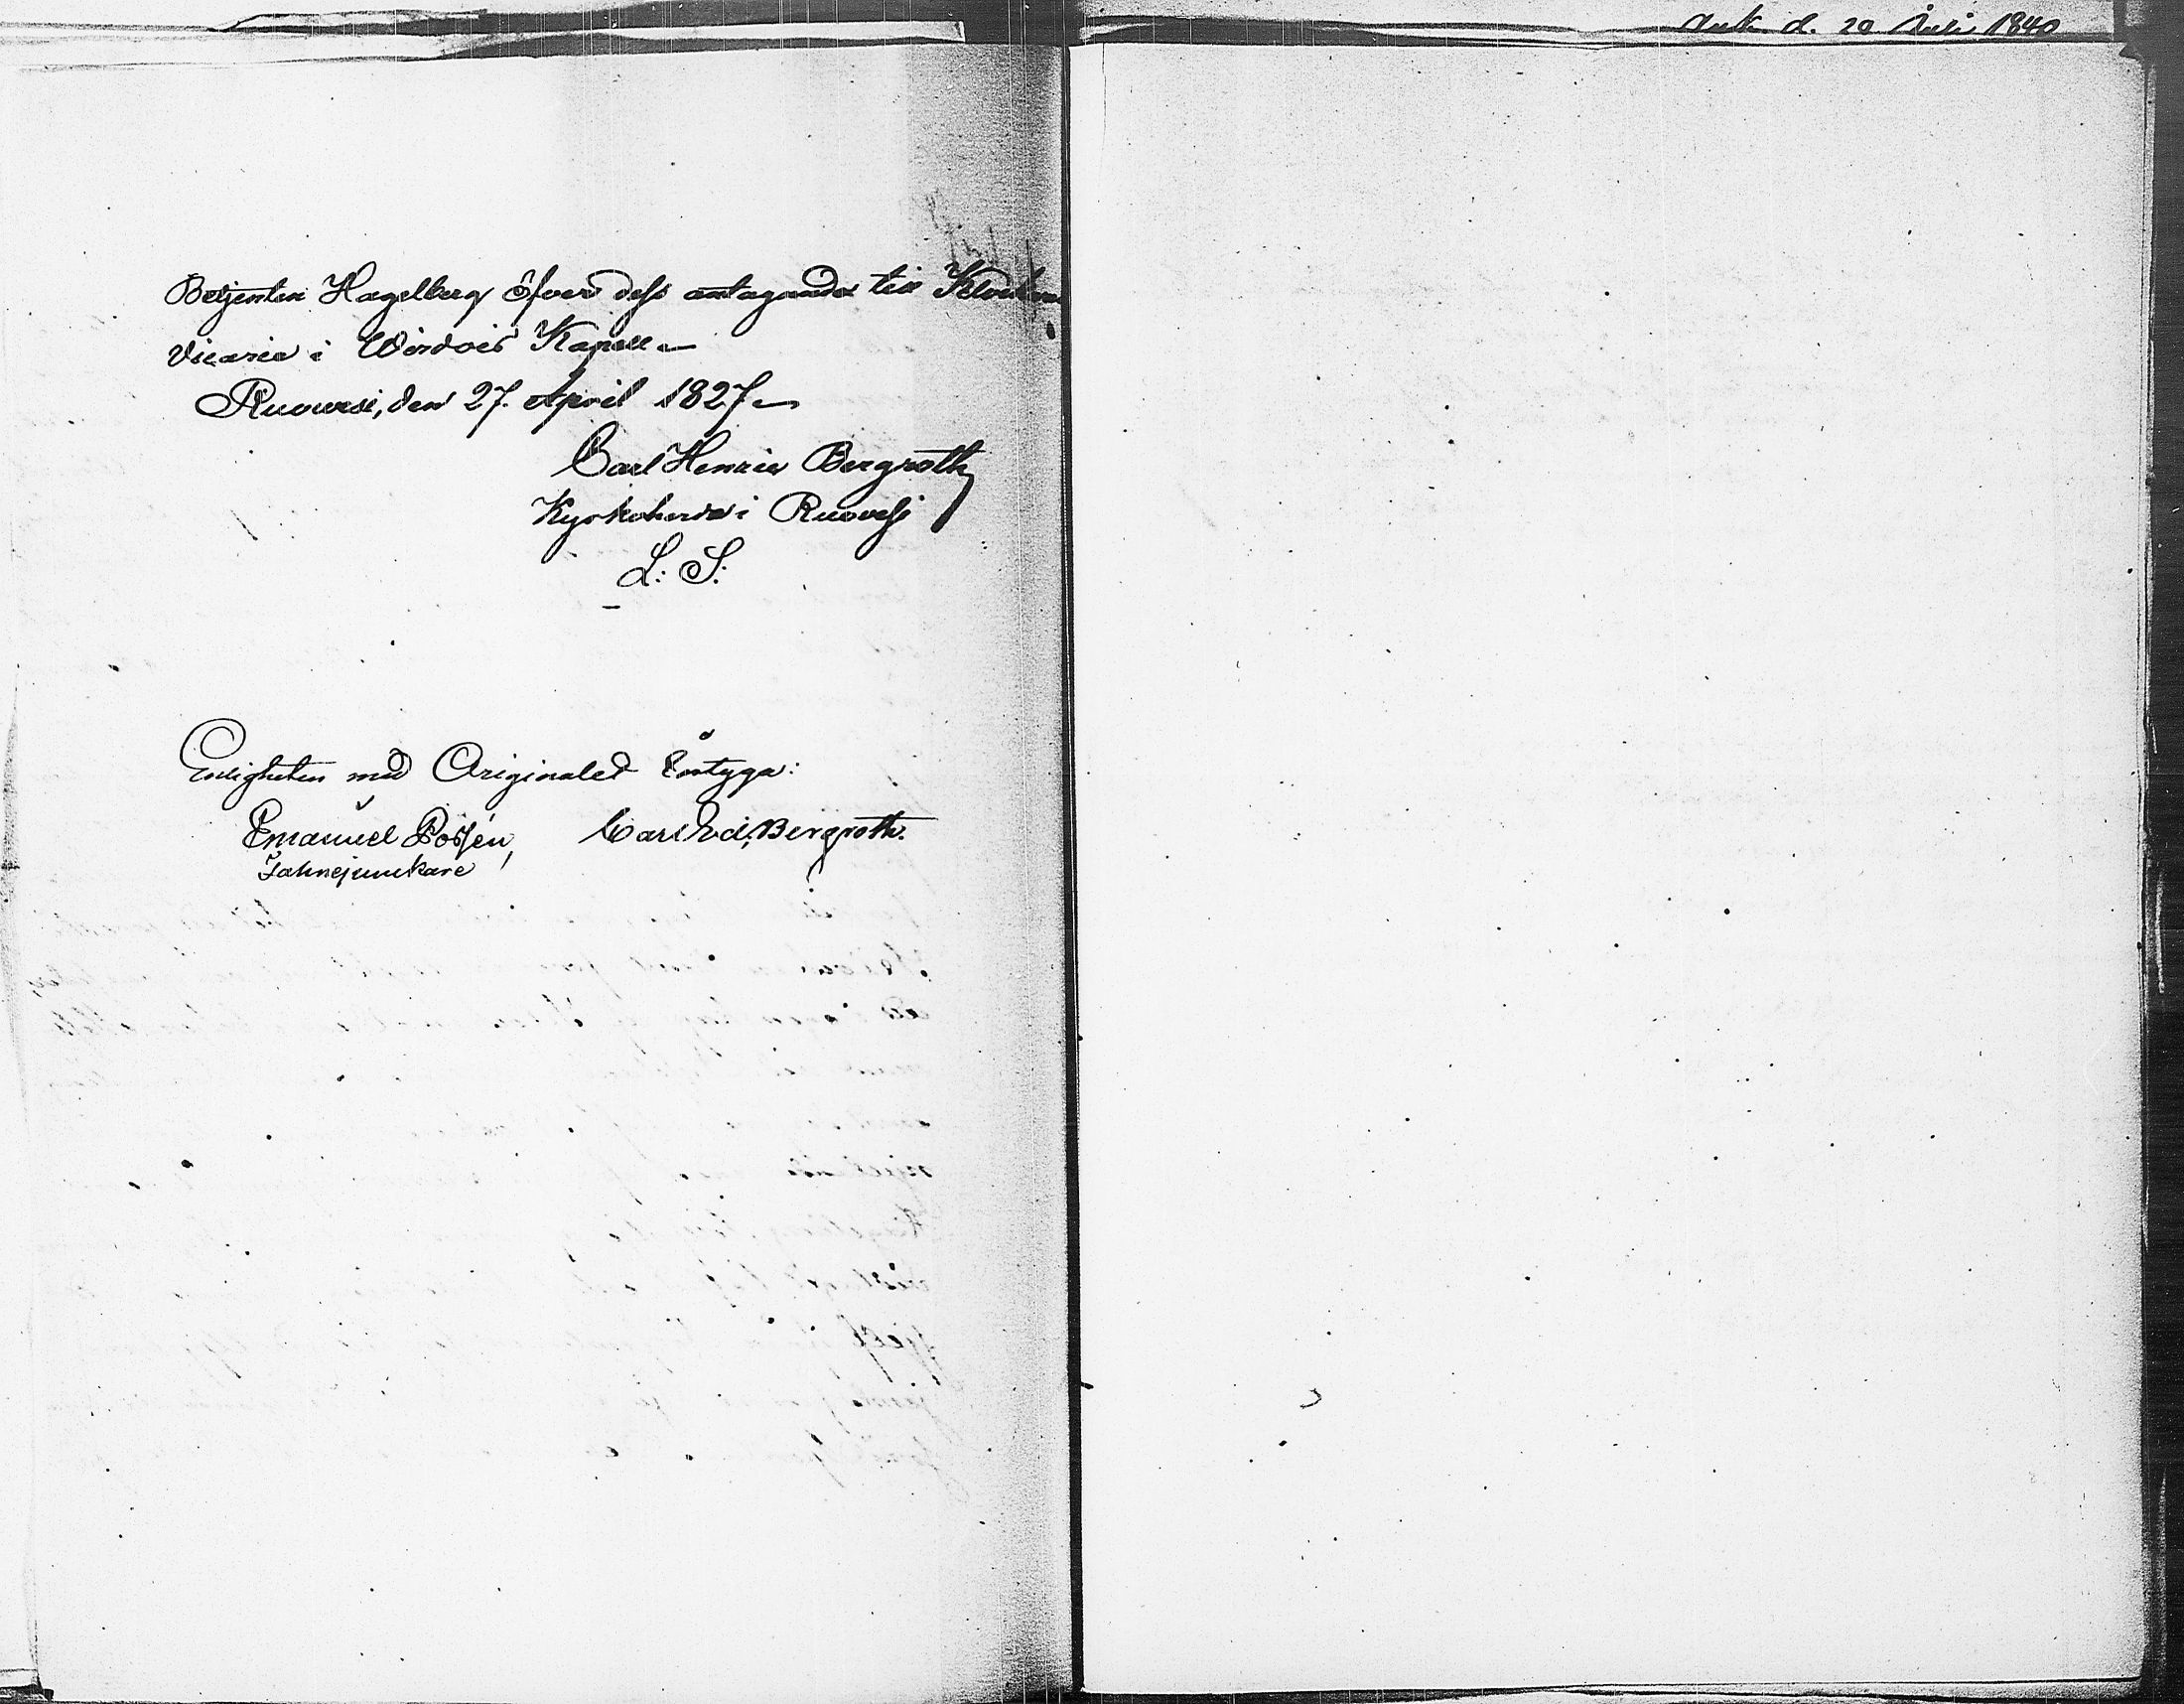 Betjenten Hagelberg öfver dess antagande till Klockare
Vicarie i Wirdois Kapell.
Ruovesi, den 27. April 1827.
Carl Henric Bergroth
Kyrkoherde i Ruovesi
L: S:
Enligheten med Originalet betyga:
Emanuel Possén, Carl Ed: Bergroth.
Fahnejunkare
d. 20 Juli 1840